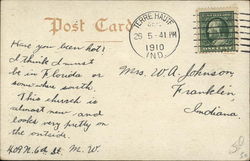 Post Card
TERRE HAUTE
26 5-41 PM
1910
IND.
Have you been hot?
I think I must
be in Florida or
some where south.
This church is
almost new and
looks very pretty on
the outside.
M. W.
Mrs. W. A. Johnson,
Franklin,
Indiana.